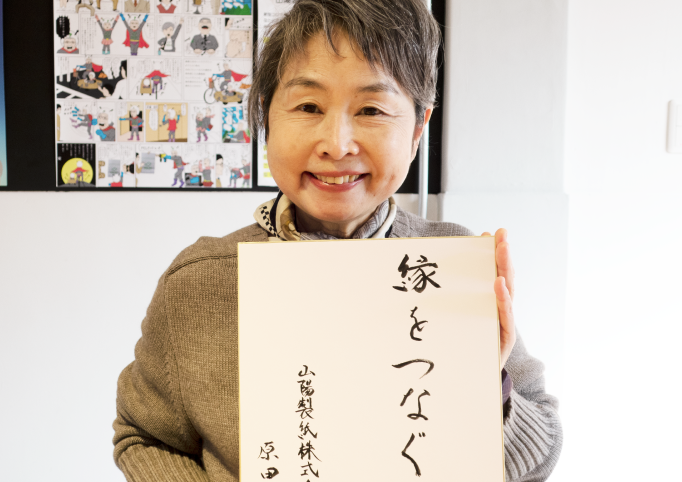 縁をつなぐ
山陽製紙株式
原田